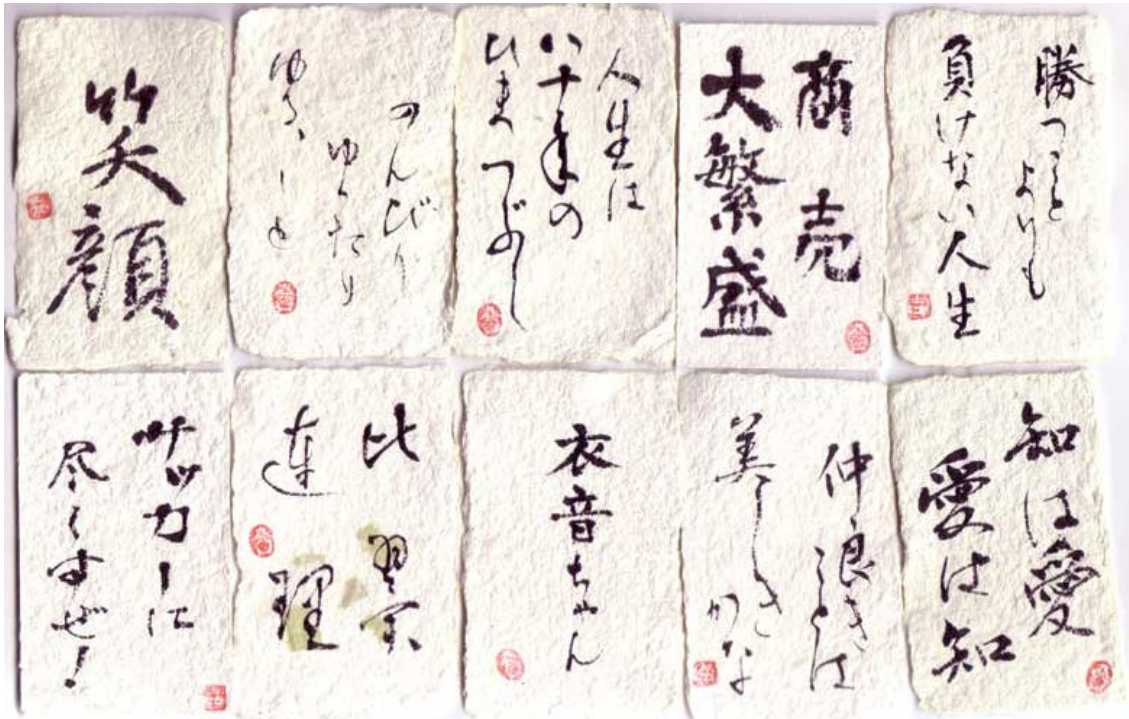 笑顔
のんびり
ゆったり
人生は
八十年の
ひまつぶし
商売
大繁盛
勝つこと
よりも
負けない人生
サッカーに
尽くすぜ!
比翼
連理
衣音ちゃん
仲良きことは
美しき
かな
知は愛
愛は知